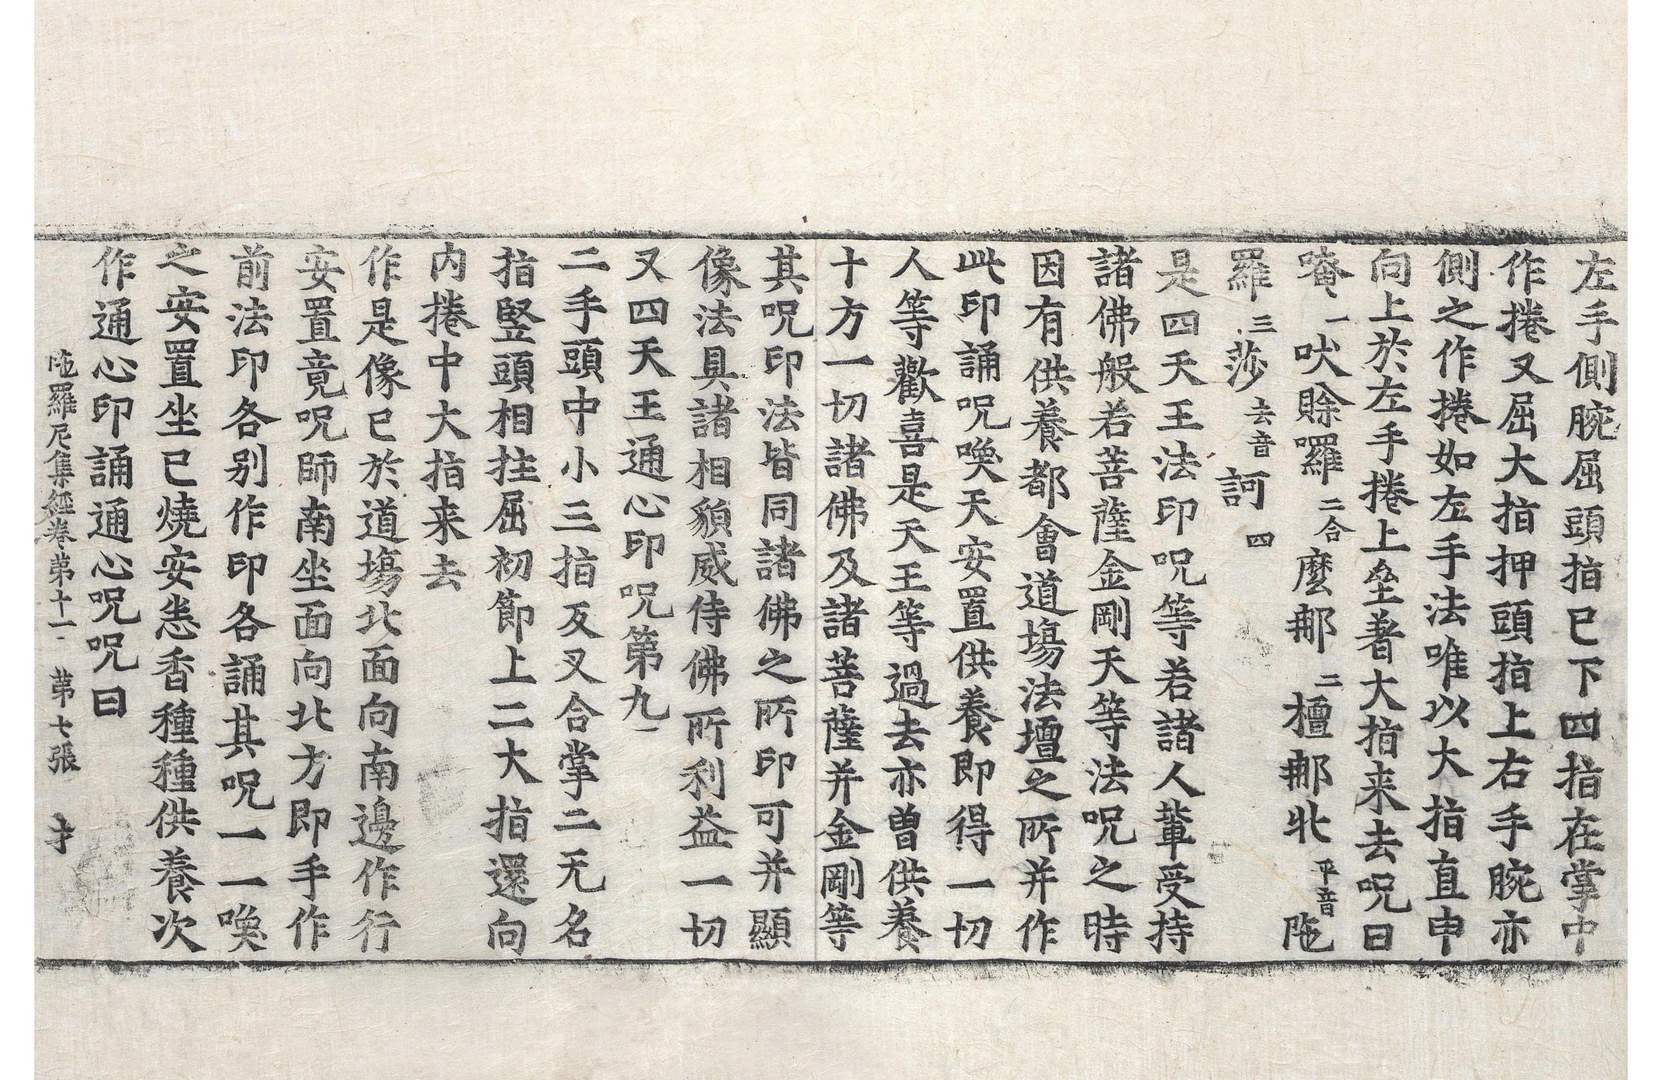 左手側腕屈頭指已下四指在掌中
作捲又屈大指押頭指上右手腕亦
側之作捲如左手法唯以大指直申
向上於左手捲上垒著大指来去呪曰
唵一吠賒囉二合麼那二檀那北平音陁
羅三莎去音訶四
是四天王法印呪等若諸人輩受持
諸佛般若菩薩金剛天等法呪之時
因有供養都會道場法壇之所并作
此印誦呪喚天安置供養即得一切
人等歡喜是天王等過去亦曾供養
十方一切諸佛及諸菩薩并金剛等
其呪印法皆同諸佛之所印可并顯
像法具諸相貌威侍佛所利益一切
又四天王通心印呪第九
二手頭中小三指反叉合掌二无名
指竪頭相拄屈初節上二大指還向
内捲中大指来去
作是像已於道場北面向南邊作行
安置竟呪師南坐面向北方即手作
前法印各别作印各誦其呪一一喚
之安置坐已燒安悉香種種供養次
作通心印誦通心呪呪曰
陁羅尼集經卷第十一 第七張 才